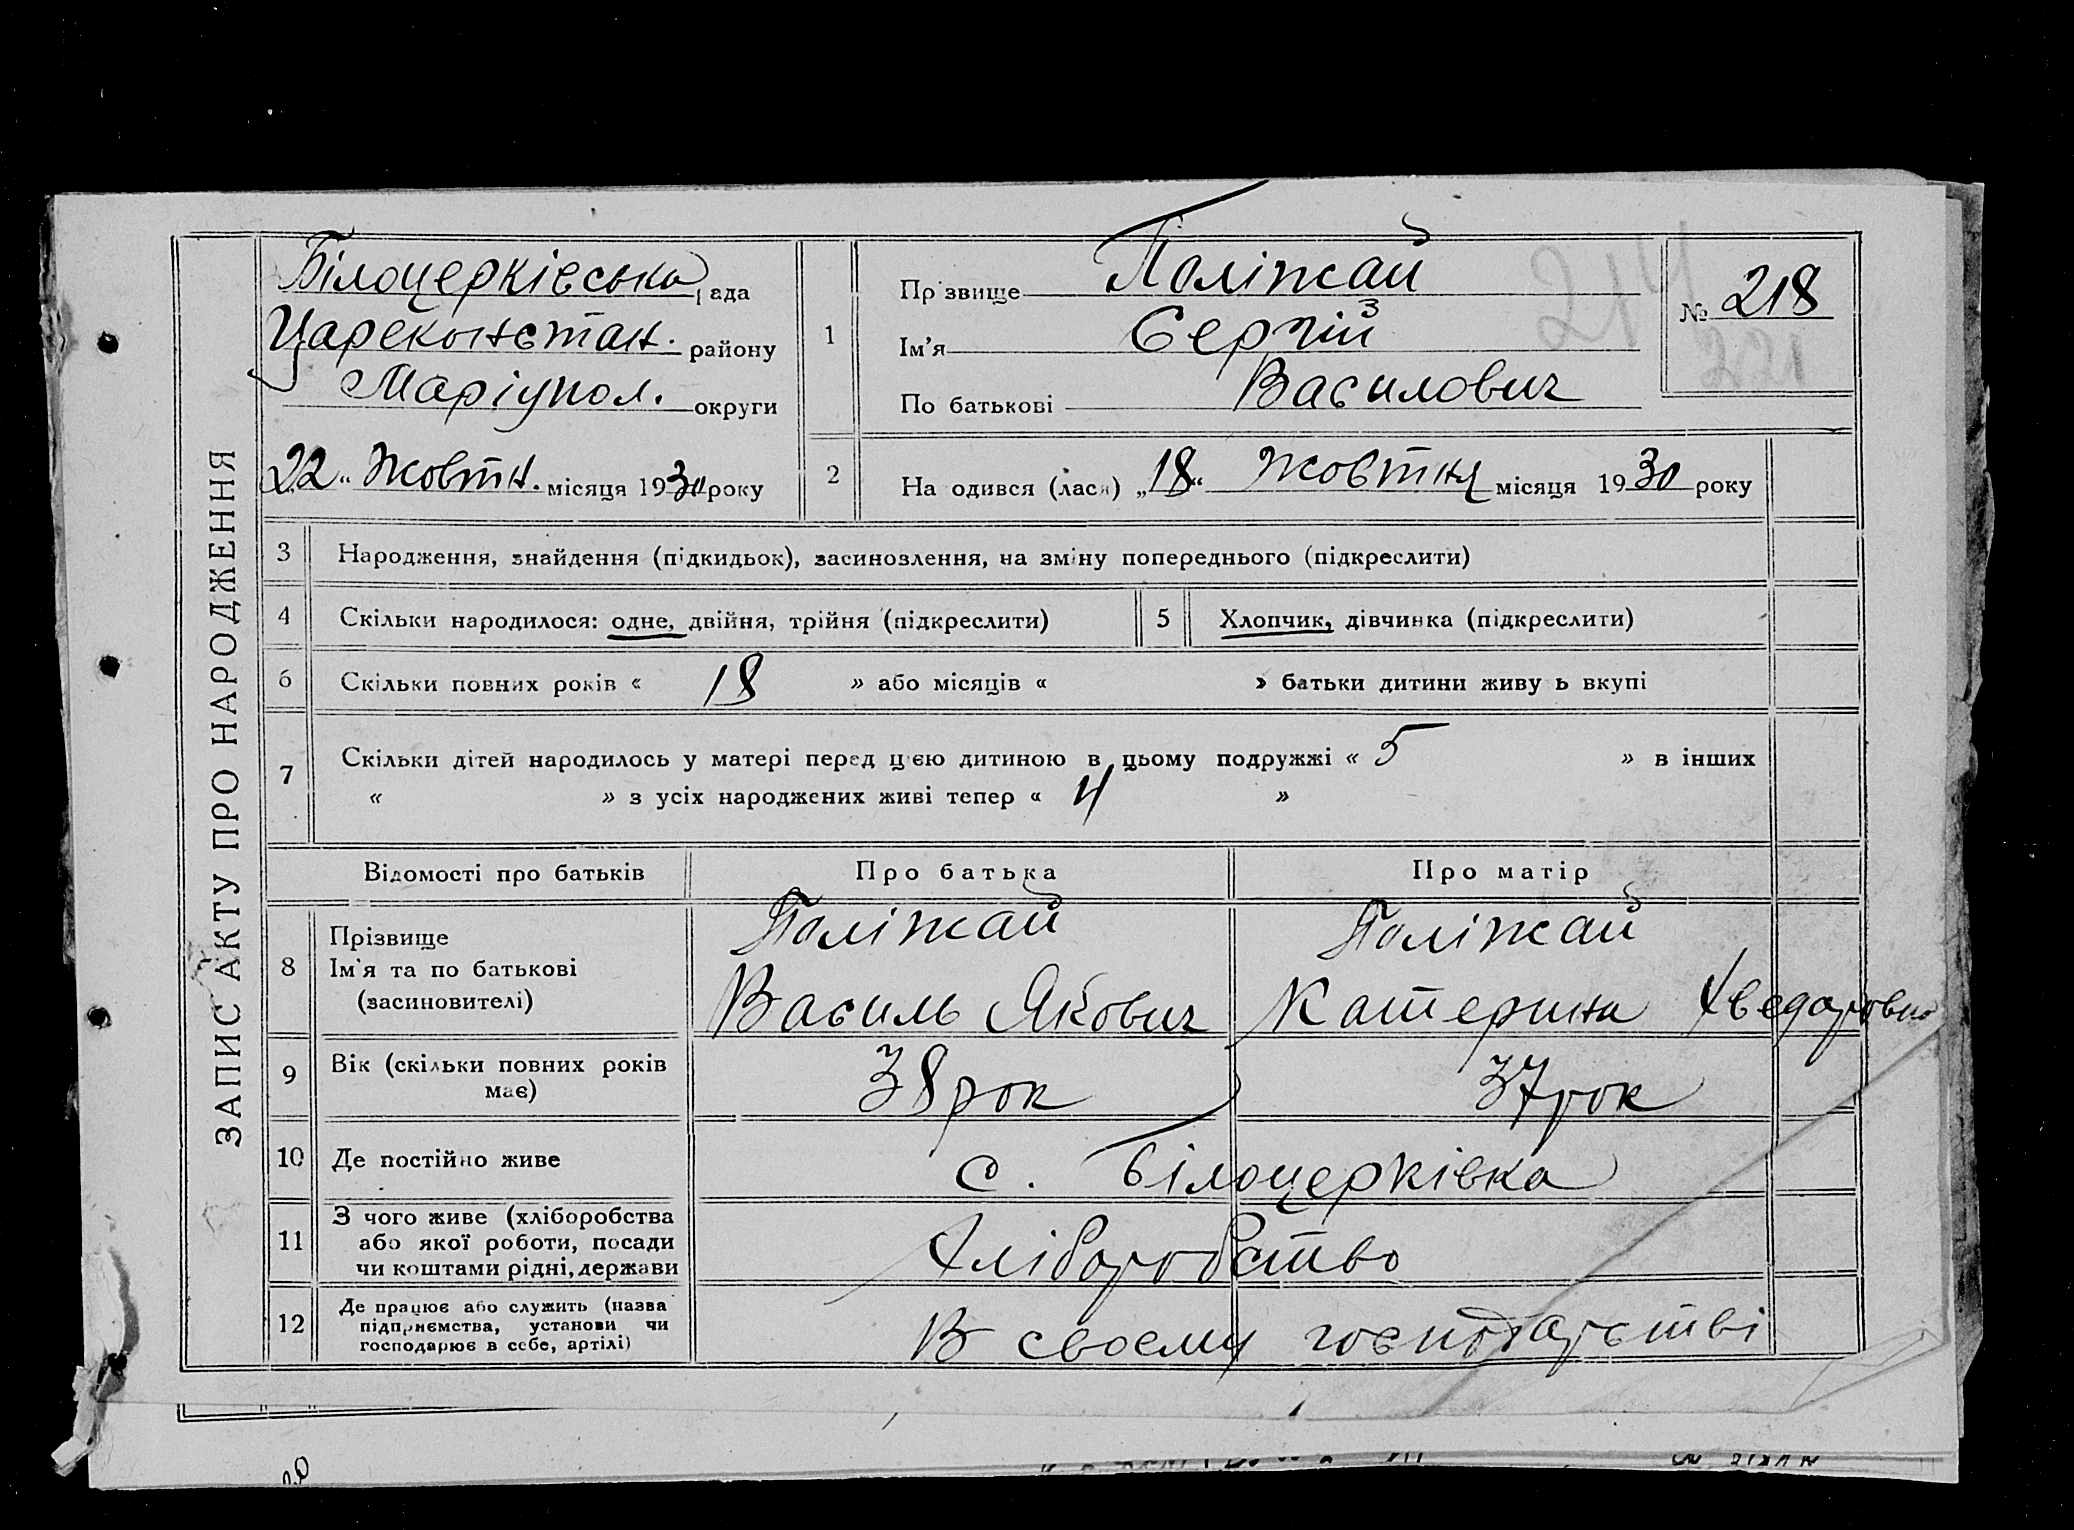 ЗАПИС АКТУ ПРО НАРОДЖЕННЯ
Білоцерківська рада
Цареконстан. району
Маріупол. округи
„22“ Жовтн. місяця 1930 року
1
Прізвище Поліжай
Ім'я Сергій
По батькові Василович
№ 218
2
На одився (лася) „18“ Жовтня місяця 1930 року
3
Народження, знайдення (підкидьок), засиновлення, на зміну попереднього (підкреслити)
4
Скільки народилося: одне, двійня, трійня (підкреслити)
5
Хлопчик, дівчинка (підкреслити)
6
Скільки повних років « 18 » або місяців « » батьки дитини живу ь вкупі
7
Скільки дітей народилось у матері перед цією дитиною в цьому подружжі « 5 » в інших
« » з усіх народжених живі тепер « 4 »
Відомості про батьків
Про батька
Про матір
8
Прізвище
Ім'я та по батькові
(засиновителі)
Поліжай
Василь Якович
Поліжай
Катерина Хведоровна
9
Вік (скільки повних років
має)
38 рок
37 рок
10
Де постійно живе
с. Білоцерківка
11
З чого живе (хліборобства
або якої роботи, посади
чи коштами рідні, держави
Хліборобство
12
Де працює або служить (назва
підприємства, установи чи
господарює в себе, артілі)
В своєму господарстві